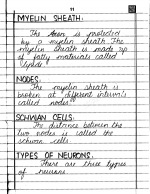 11
MYELIN SHEATH:
The Axon is protected
by a myelin sheath. The
myelin sheath is made up
of fatty materials called
"lipids"
NODES.
The myelin sheath is
broken at different intervals
called "nodes"
SCHWAN CELLS.
The distance between the
two nodes is called the
schwan cells.
TYPES OF NEURONS.
There are three types
of neurons